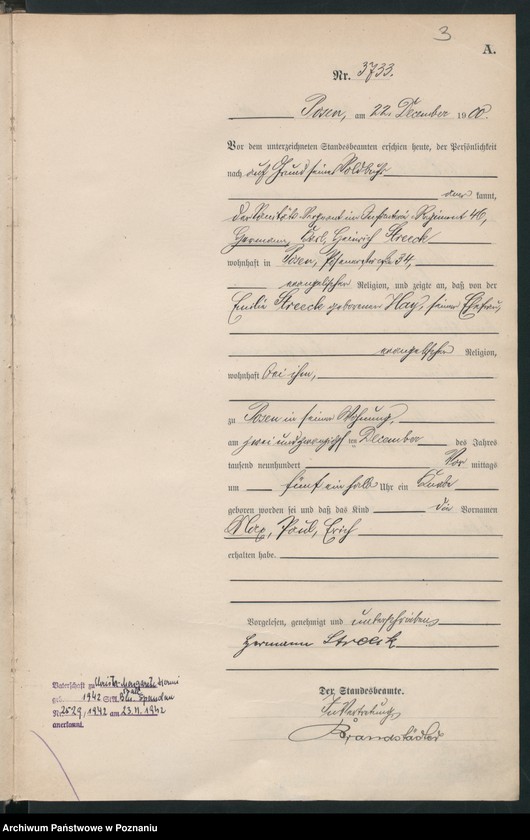 3
A.
Nr. 3733.
Posen, am 22. December 1900.
Vor dem unterzeichneten Standesbeamten erschien heute, der Persönlichkeit
nach auf Grund seines Soldbuchs
anerkannt,
der Sanitäts-Sergeant im Infanterie-Regiment 46,
Hermann, Carl, Heinrich Streeck
wohnhaft in Posen, 34,
evangelischer Religion, und zeigte an, daß von der
Emilie Streeck geborenen Hay, seiner Ehefrau,
evangelischer Religion,
wohnhaft bei ihm,
zu Posen in seiner Wohnung,
am zwei und zwanzigsten December des Jahres
tausend neunhundert Vormittags
um fünf ein halb Uhr ein Knabe
geboren worden sei und daß das Kind die Vornamen
Max, Paul, Erich
erhalten habe.
Vorgelesen, genehmigt und unterschrieben
Hermann Streeck
Der Standesbeamte.
In Vertretung
Brandstädter
Vaterschaft zu Christa Margarete
geb. 1942 StA Bln. Spandau
Nr. 2529/1942 am 23.11.1942
anerkannt.
Archiwum Państwowe w Poznaniu